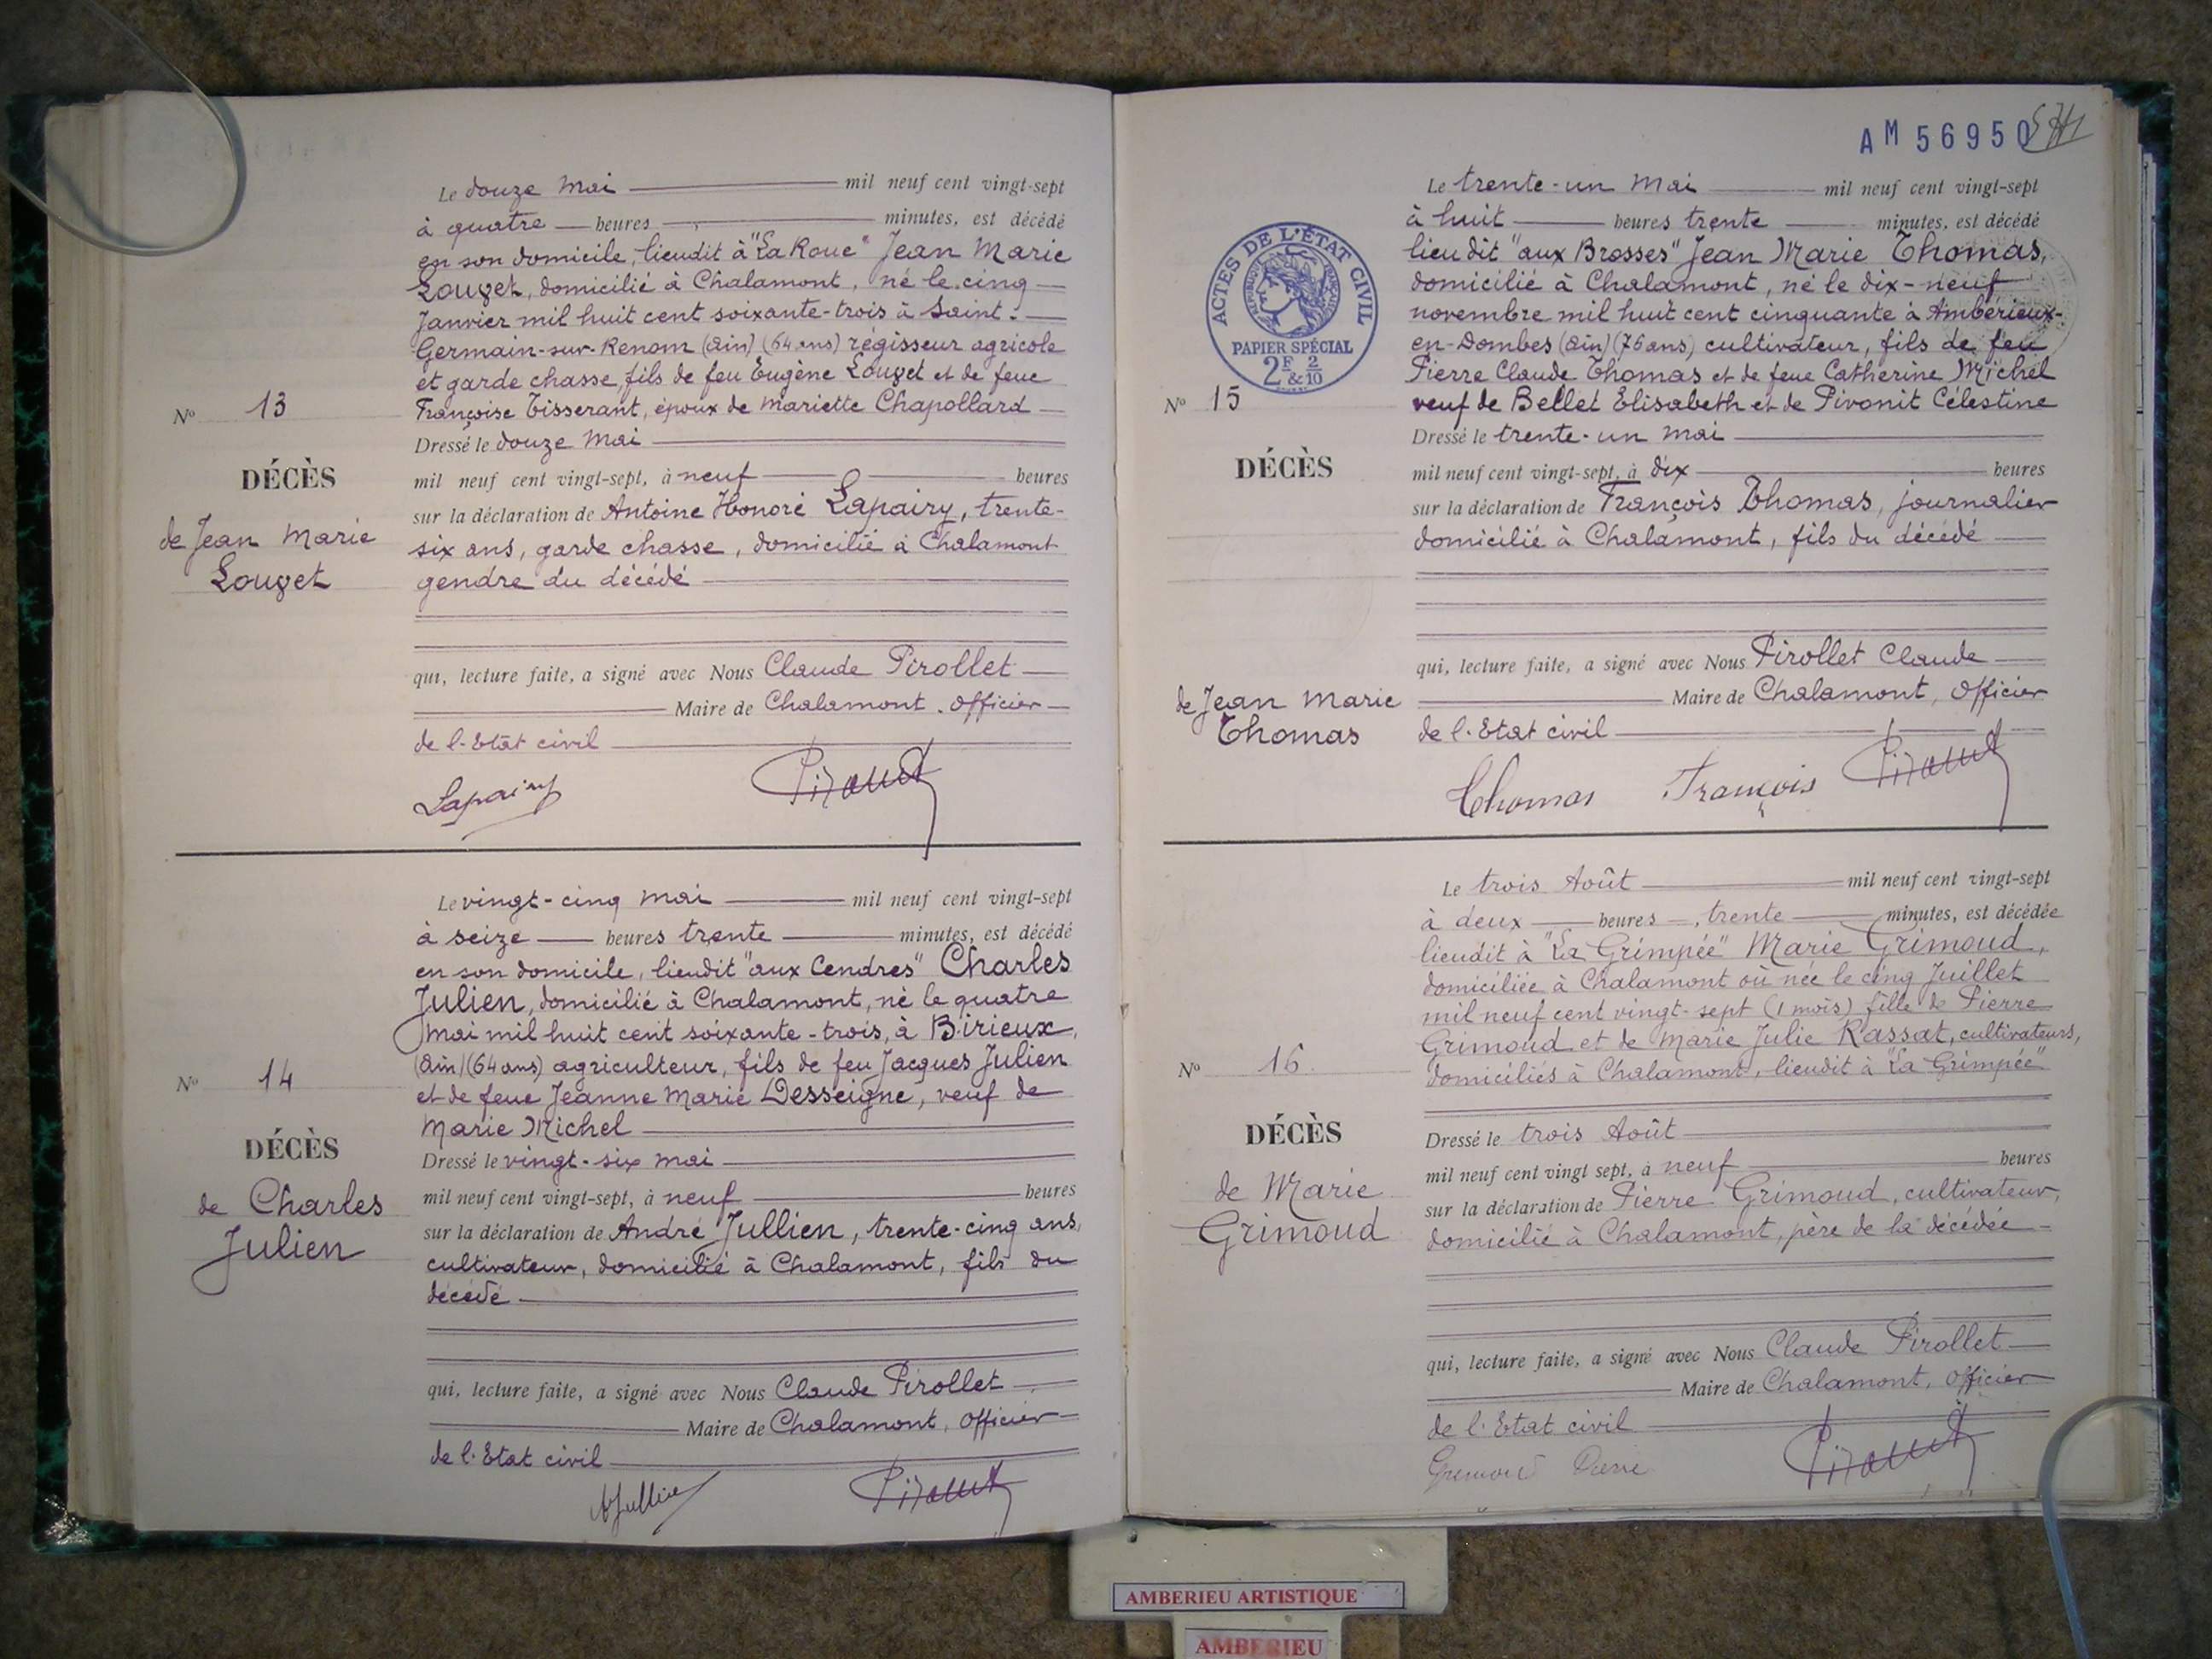 Le douze Mai mil neuf cent vingt-sept
à quatre heures minutes, est décédé
en son domicile, lieudit à "La Roue" Jean Marie
Louget, domicilié à Chalamont, né le cinq
Janvier mil huit cent soixante-trois à Saint-
Germain-sur-Renom (Ain) (64 ans) régisseur agricole
et garde chasse, fils de feu Eugène Louget et de feue
Françoise Tisserant, époux de Mariette Chapollard
Dressé le douze Mai
mil neuf cent vingt-sept, à neuf heures
sur la déclaration de Antoine Honoré Lapairy, trente-
six ans, garde chasse, domicilié à Chalamont
gendre du décédé
qui, lecture faite, a signé avec Nous Claude Pirollet
Maire de Chalamont, Officier
de l'Etat civil
Lapairy
N° 13
DÉCÈS
de Jean Marie
Louget
Le vingt-cinq Mai mil neuf cent vingt-sept
à seize heures trente minutes, est décédé
en son domicile, lieudit "aux Cendres" Charles
Julien, domicilié à Chalamont, né le quatre
Mai mil huit cent soixante-trois, à Birieux,
(Ain) (64 ans) agriculteur, fils de feu Jacques Julien
et de feue Jeanne Marie Desseigne, veuf de
Marie Michel
Dressé le vingt-six Mai
mil neuf cent vingt-sept, à neuf heures
sur la déclaration de André Jullien, trente-cinq ans,
cultivateur, domicilié à Chalamont, fils du
décédé
qui, lecture faite, a signé avec Nous Claude Pirollet
Maire de Chalamont, Officier
de l'Etat civil
AJullien
N° 14
DÉCÈS
de Charles
Julien
AM 56950
ACTES DE L'ÉTAT CIVIL
PAPIER SPÉCIAL
2F & 2/10
Le trente-un Mai mil neuf cent vingt-sept
à huit heures trente minutes, est décédé
lieudit "aux Brosses" Jean Marie Thomas,
domicilié à Chalamont, né le dix-neuf
novembre mil huit cent cinquante à Ambérieux-
en-Dombes (Ain) (76 ans) cultivateur, fils de feu
Pierre Claude Thomas et de feue Catherine Michel
veuf de Bellet Elisabeth et de Pivonit Célestine
Dressé le trente-un Mai
mil neuf cent vingt-sept, à dix heures
sur la déclaration de François Thomas, journalier
domicilié à Chalamont, fils du décédé
qui, lecture faite, a signé avec Nous Pirollet Claude
Maire de Chalamont, Officier
de l'Etat civil
Thomas François
N° 15
DÉCÈS
de Jean Marie
Thomas
Le trois Août mil neuf cent vingt-sept
à deux heures trente minutes, est décédée
lieudit à "La Grimpée" Marie Grimoud,
domiciliée à Chalamont où née le cinq Juillet
mil neuf cent vingt-sept (1 mois) fille de Pierre
Grimoud et de Marie Julie Rassat, cultivateurs,
domiciliés à Chalamont, lieudit à "La Grimpée"
Dressé le trois Août
mil neuf cent vingt sept, à neuf heures
sur la déclaration de Pierre Grimoud, cultivateur,
domicilié à Chalamont, père de la décédée
qui, lecture faite, a signé avec Nous Claude Pirollet
Maire de Chalamont, Officier
de l'Etat civil
Grimoud Pierre
N° 16
DÉCÈS
de Marie
Grimoud
AMBERIEU ARTISTIQUE
AMBERIEU